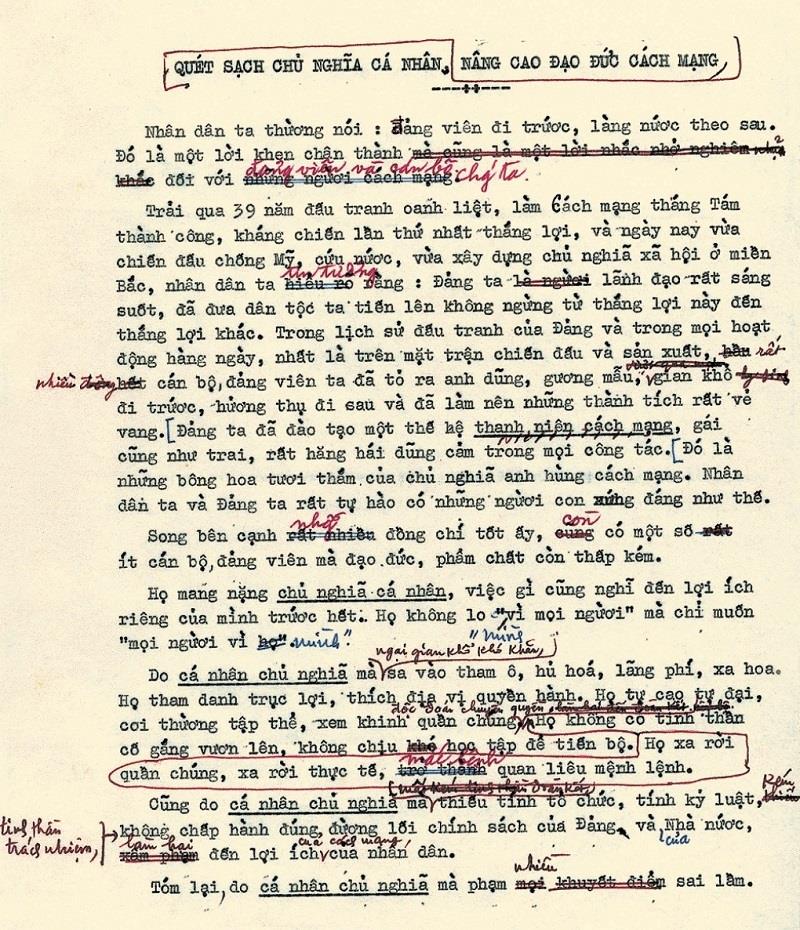 QUÉT SẠCH CHỦ NGHĨA CÁ NHÂN, NÂNG CAO ĐẠO ĐỨC CÁCH MẠNG
Nhân dân ta thường nói : đảng viên đi trước, làng nước theo sau.
Đó là một lời khen chân thành mà cũng là một lời nhắc nhở nghiêm
đảng viên và cán bộ
khắc đối với những người cách mạng chg' ta.
Trải qua 39 năm đấu tranh oanh liệt, làm Cách mạng tháng Tám
thành công, kháng chiến lần thứ nhất thắng lợi, và ngày nay vừa
chiến đấu chống Mỹ, cứu nước, vừa xây dựng chủ nghiã xã hội ở miền
tin tưởng
Bắc, nhân dân ta hiểu rõ rằng : Đảng ta là người lãnh đạo rất sáng
suốt, đã đưa dân tộc ta tiến lên không ngừng từ thắng lợi này đến
thắng lợi khác. Trong lịch sử đấu tranh của Đảng và trong mọi hoạt
động hàng ngày, nhất là trên mặt trận chiến đấu và sản xuất, hầu rất
nhiều đồng hết cán bộ, đảng viên ta đã tỏ ra anh dũng, gương mẫu, gian khổ
đi trước, hưởng thụ đi sau và đã làm nên những thành tích rất vẻ
vang. [Đảng ta đã đào tạo một thế hệ thanh niên cách mạng, gái
cũng như trai, rất hăng hái dũng cảm trong mọi công tác. [Đó là
những bông hoa tươi thắm của chủ nghiã anh hùng cách mạng. Nhân
dân ta và Đảng ta rất tự hào có những người con xứng đáng như thế.
những còn
Song bên cạnh rất nhiều đồng chí tốt ấy, cũng có một số rất
ít cán bộ, đảng viên mà đạo đức, phẩm chất còn thấp kém.
Họ mang nặng chủ nghiã cá nhân, việc gì cũng nghĩ đến lợi ích
riêng của mình trước hết. Họ không lo "vì mọi người" mà chỉ muốn
"mọi người vì họ". mình".
"mình
ngại gian khổ khó khăn,
Do cá nhân chủ nghiã mà sa vào tham ô, hủ hoá, lãng phí, xa hoa.
Họ tham danh trục lợi, thích địa vị quyền hành. Họ tự cao tự đại,
độc đoán chuyên quyền
coi thường tập thể, xem khinh quần chúng, Họ không có tinh thần
cố gắng vươn lên, không chịu khó học tập để tiến bộ. Họ xa rời
mắc bệnh
quần chúng, xa rời thực tế, trở thành quan liêu mệnh lệnh.
Cũng do cá nhân chủ nghiã mà thiếu tính tổ chức, tính kỷ luật, kém
tinh thần
trách nhiệm, không chấp hành đúng đường lối chính sách của Đảng và của Nhà nước,
làm hại của cách mạng,
xâm phạm đến lợi ích của nhân dân.
nhiều
Tóm lại, do cá nhân chủ nghiã mà phạm mọi khuyết điểm sai lầm.